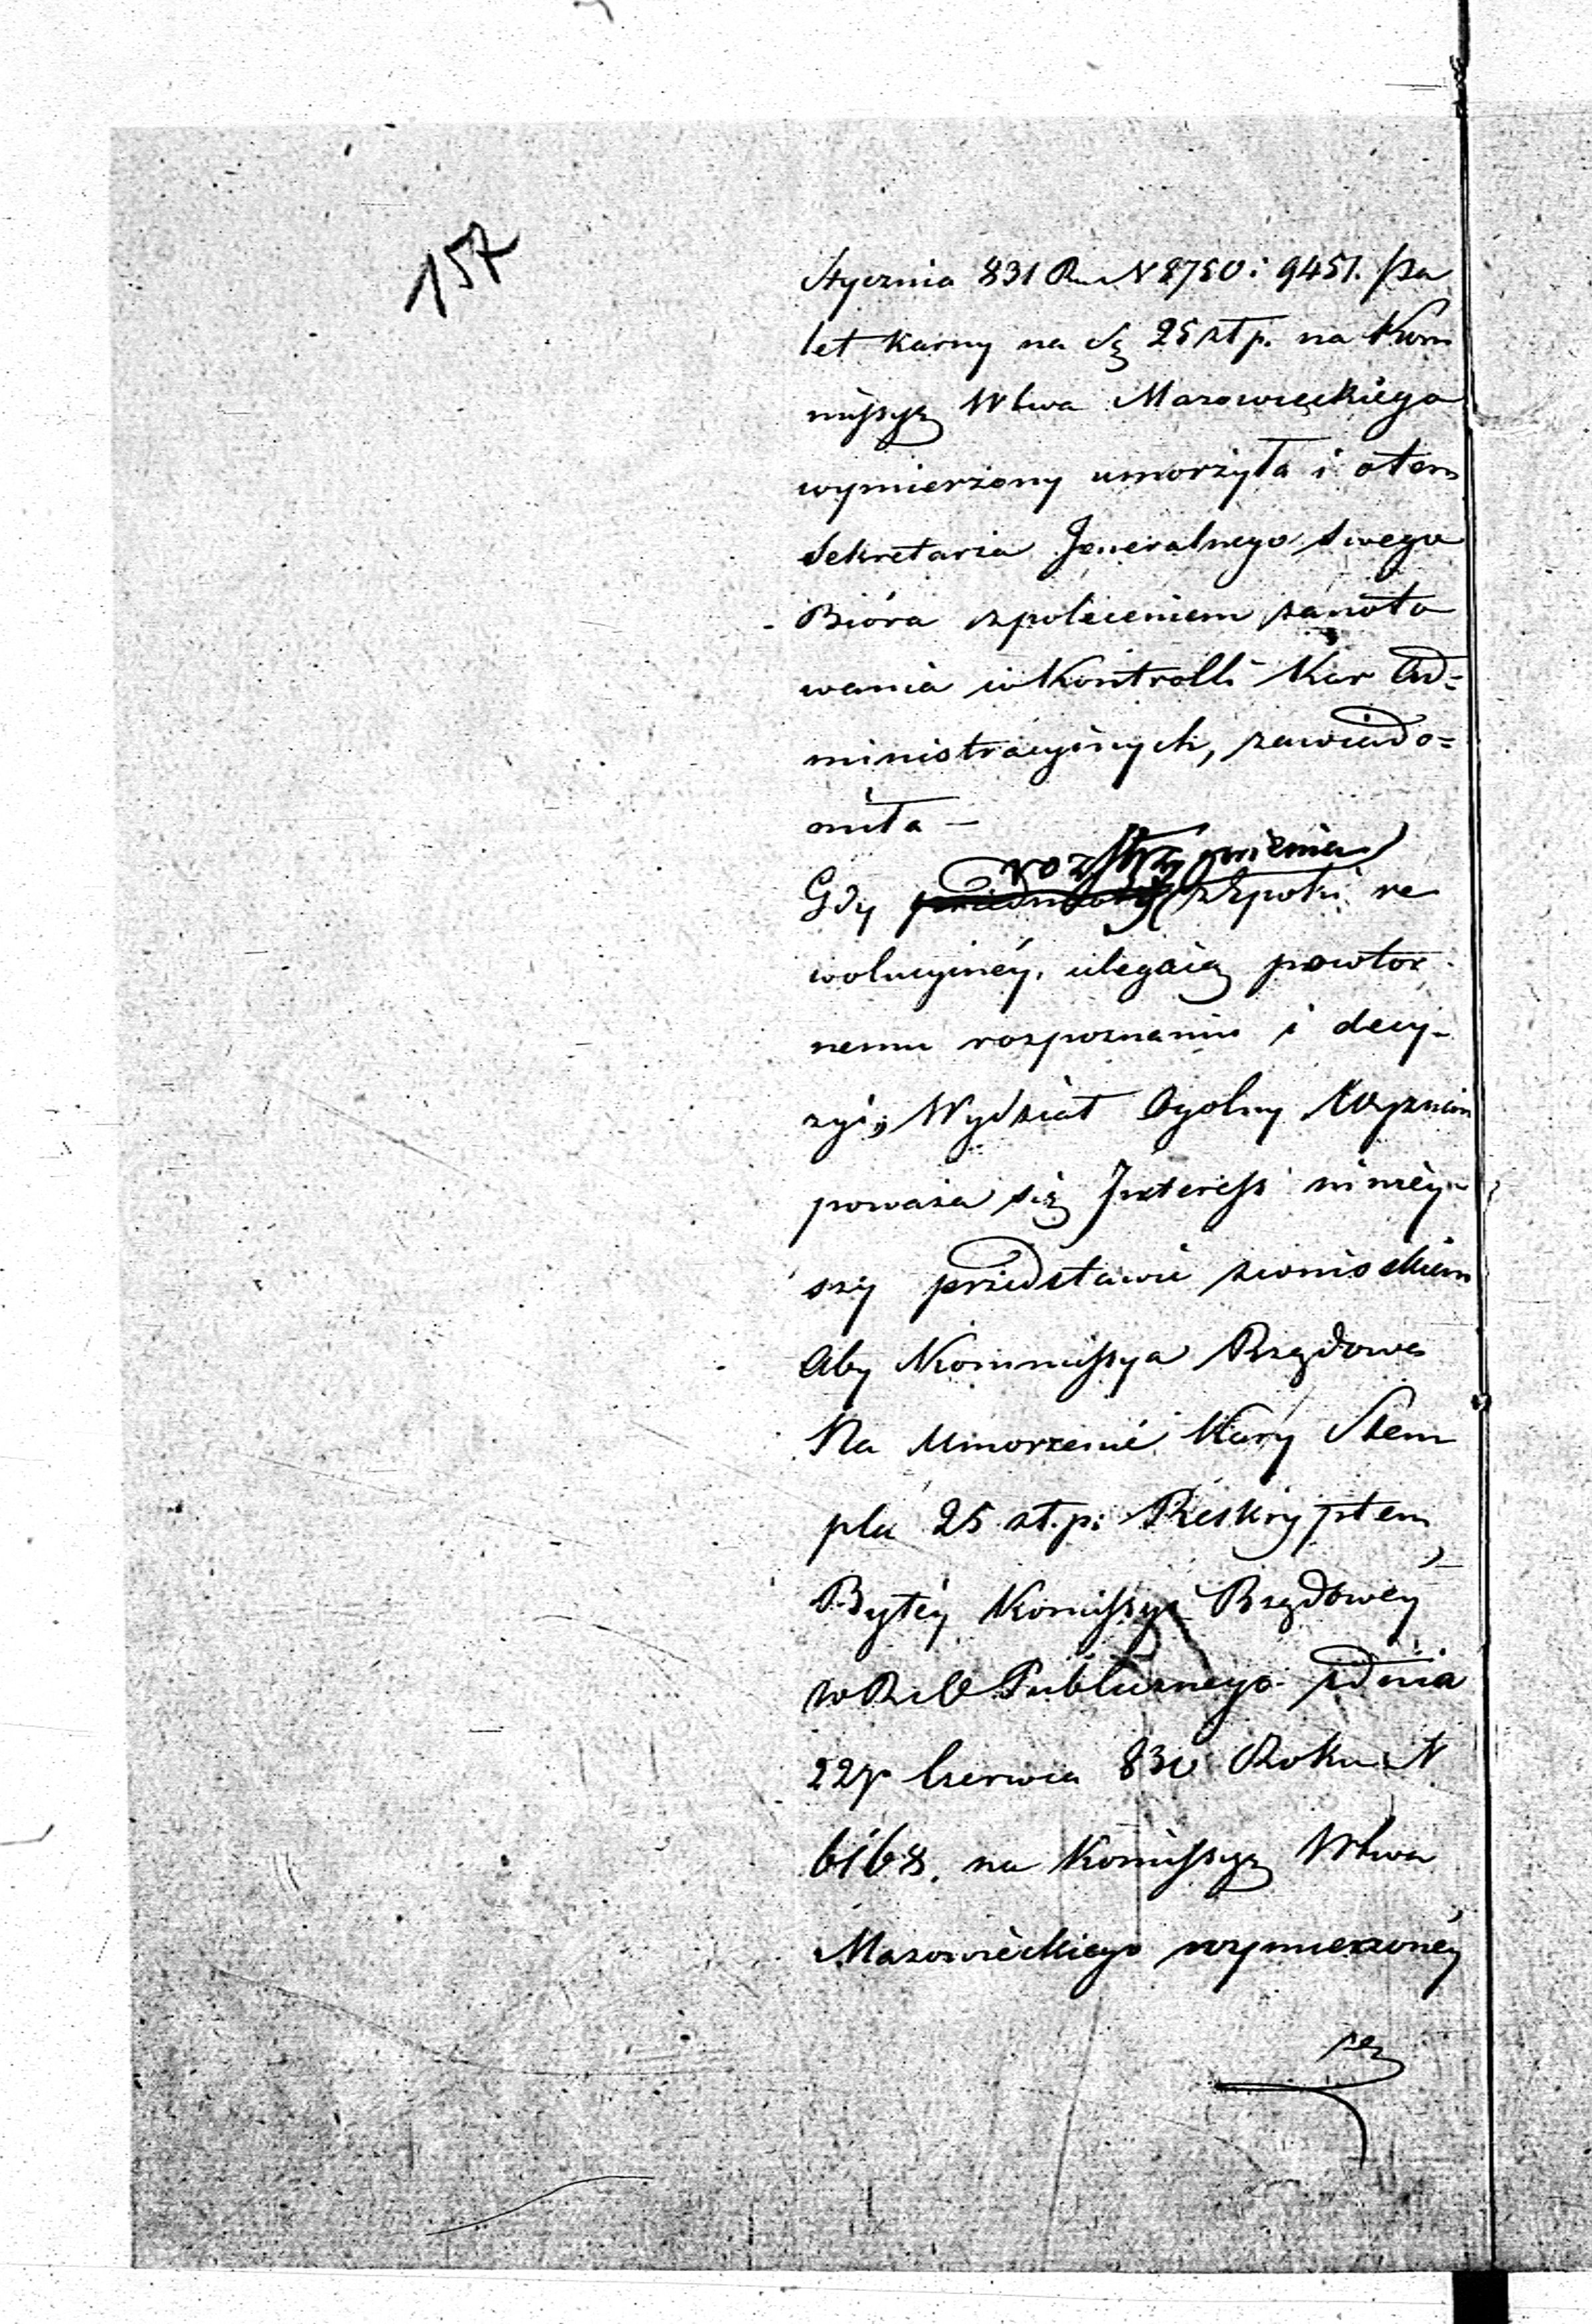 157
Stycznia 831 R. N 8750 i 9451. Pa
let karny na Sę 25 zł p. na Kom
missyą Wtwa Mazowieckiego
wymierzony umorzyła i otem
Sekretarza Jeneralnego swego
Bióra zpoleceniem zanoto
wania w Kontrolli Kar Ad=
ministracyinych, zawiado=
miła —
rozstrzygnienia
Gdy przedmioty zEpoki re
wolucyiney, ulegaią powtor
nemu rozpoznaniu i decy-
zyi, Wydział Ogolny
poważa się Interess niniey-
szy przedstawić zwnioskiem
Aby Kommissya Rządowa
Na Umorzenie Kary Stem
plu 25 zł. p: Reskryptem
Byłéy Komissyi Rządowéy
Publicznego zdnia
22 Czerwca 830 Roku N
6168. na Komissyą Wtwa
Mazowieckiego wymierzonéy